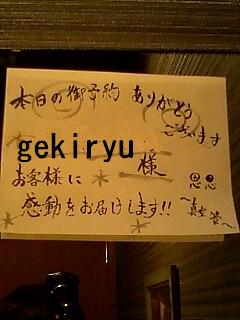 本日の御予約 ありがとう
ございます
gekiryu
様
お客様に
感動をお届けします!!